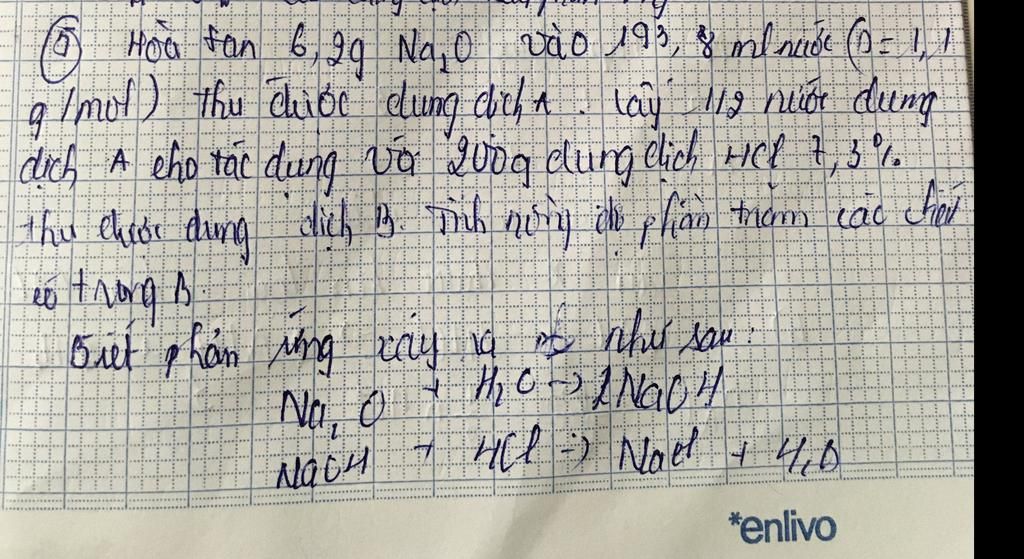 ⑤ Hoà tan 6,2g Na₂O vào 193,8 ml nước (D = 1,1
g/mol) thu được dung dịch A. Lấy 1/2 nước dung
dịch A cho tác dụng với 200g dung dịch HCl 7,3%
thu được dung dịch B. Tính nồng độ phần trăm các chất
có trong B.
Biết phản ứng xảy ra như sau:
Na₂O + H₂O → 2NaOH
NaOH + HCl → NaCl + H₂O
*enlivo